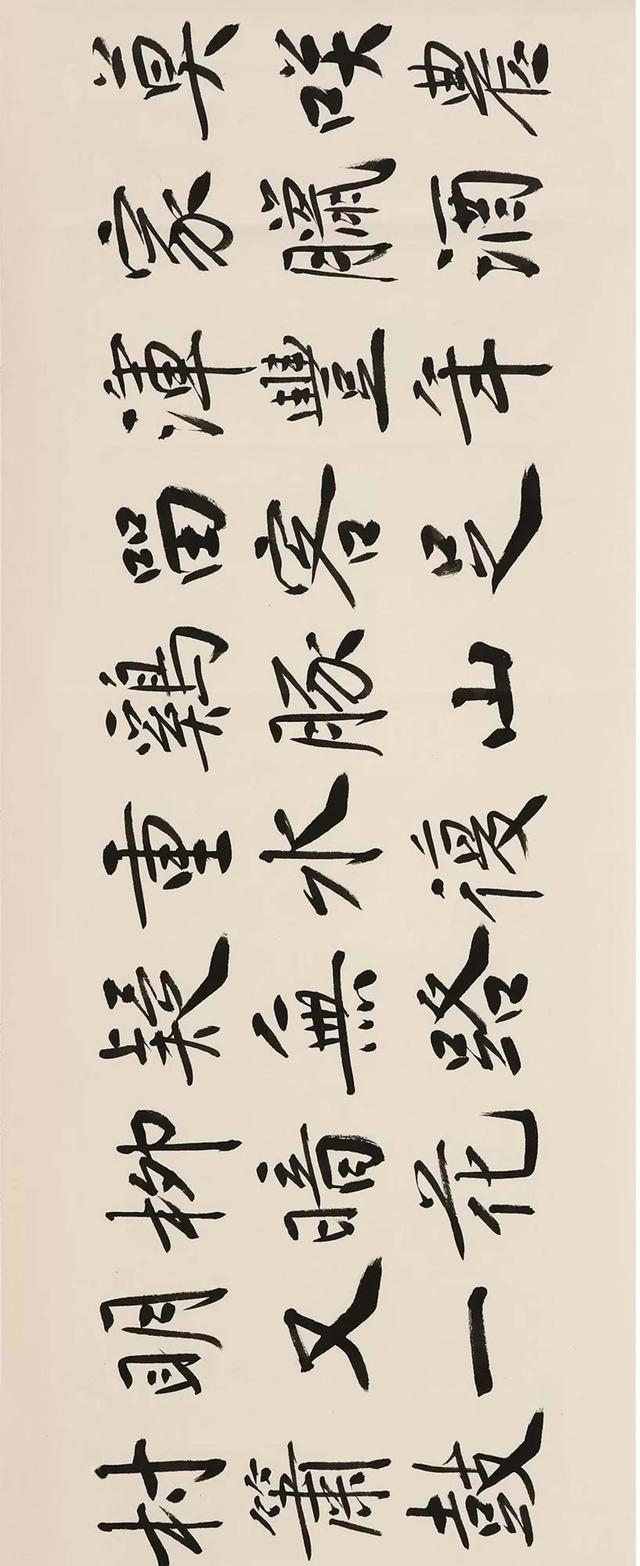 莫咲農
家臘酒
渾豐年
留客足
鷄豚山
重水複
疑無路
柳暗花
明又一
村簫鼓